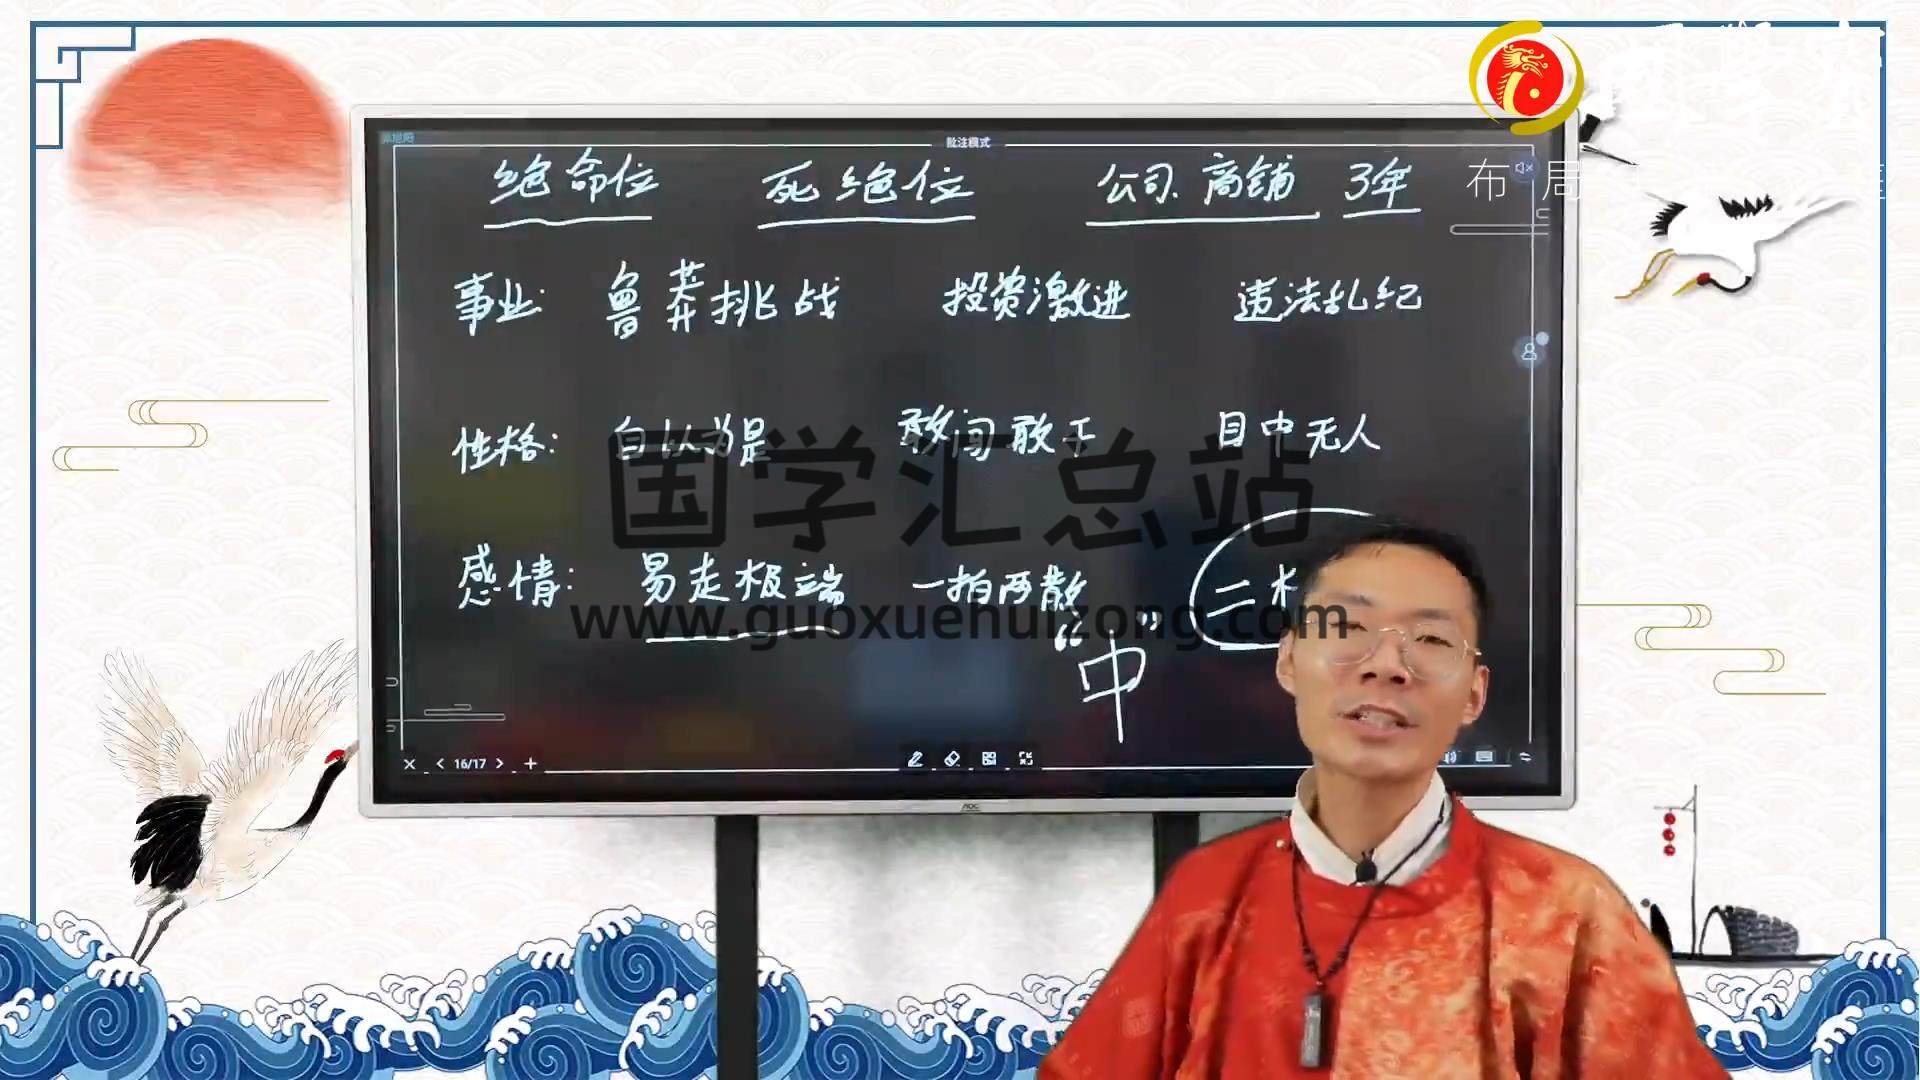 批注模式
绝命位 死绝位 公司.商铺 3年
布局
事业: 鲁莽挑战 投资激进 违法乱纪
性格: 自以为是 敢闯敢干 目中无人
国学汇总站
感情: 易走极端 一拍两散 二
www.guoxuehuizong.com
“中”
16/17
AOC